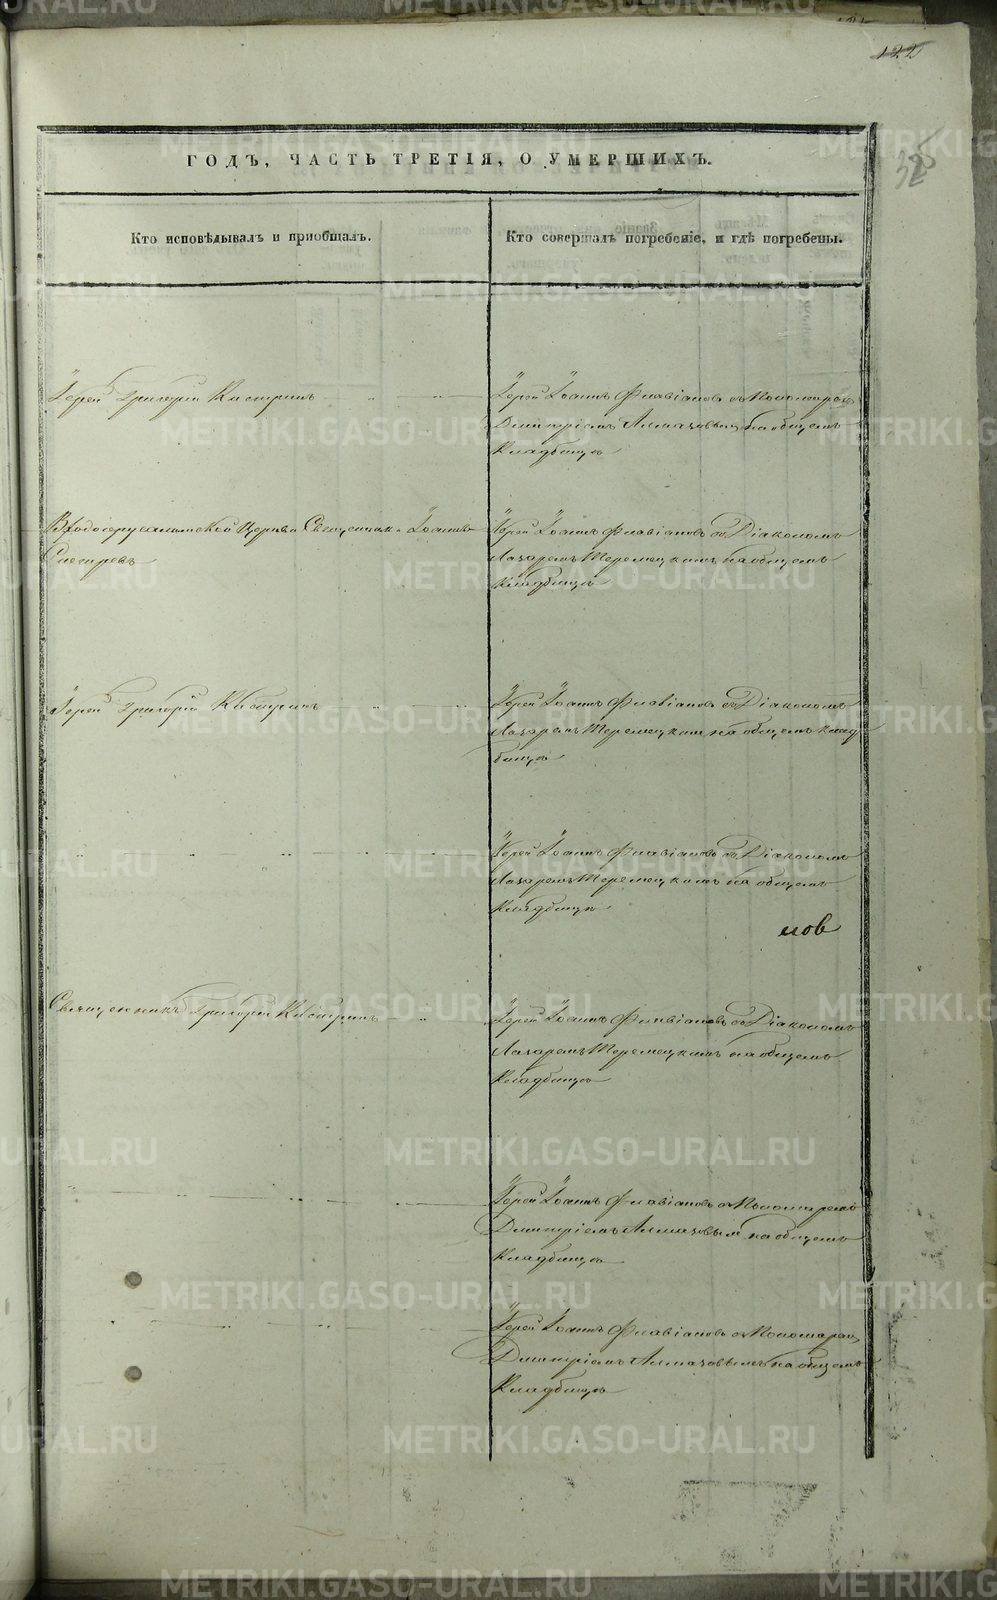 122
325
ГОДЪ, ЧАСТЬ ТРЕТІЯ, О УМЕРШИХЪ.
Кто исповѣдывалъ и пріобщалъ.
Кто совершалъ погребеніе, и гдѣ погребены.
Іерей Григорій Кистринъ
Іерей Іоаннъ Флавіановъ съ Пономаремъ
Дмитріемъ Алмазовымъ на общемъ
Кладбищѣ
Входоіерусалимской Церкви Священникъ Іоаннъ
Іерей Іоаннъ Флавіановъ съ Діакономъ
Лазаремъ Теремецкимъ на общемъ
Кладбищѣ
Іерей Григорій Кистринъ
Іерей Іоаннъ Флавіановъ съ Діакономъ
Лазаремъ Теремецкимъ на общемъ клад
бищѣ
Іерей Іоаннъ Флавіановъ съ Діакономъ
Лазаремъ Теремецкимъ на общемъ
Кладбищѣ
нов
Священникъ Григорій Кистринъ
Іерей Іоаннъ Флавіановъ съ Діакономъ
Лазаремъ Теремецкимъ на общемъ
Кладбищѣ
Іерей Іоаннъ Флавіановъ съ Пономаремъ
Дмитріемъ Алмазовымъ на общемъ
Кладбищѣ
Іерей Іоаннъ Флавіановъ съ Пономаремъ
Дмитріемъ Алмазовымъ на общемъ
Кладбищѣ
METRIKI.GASO-URAL.RU